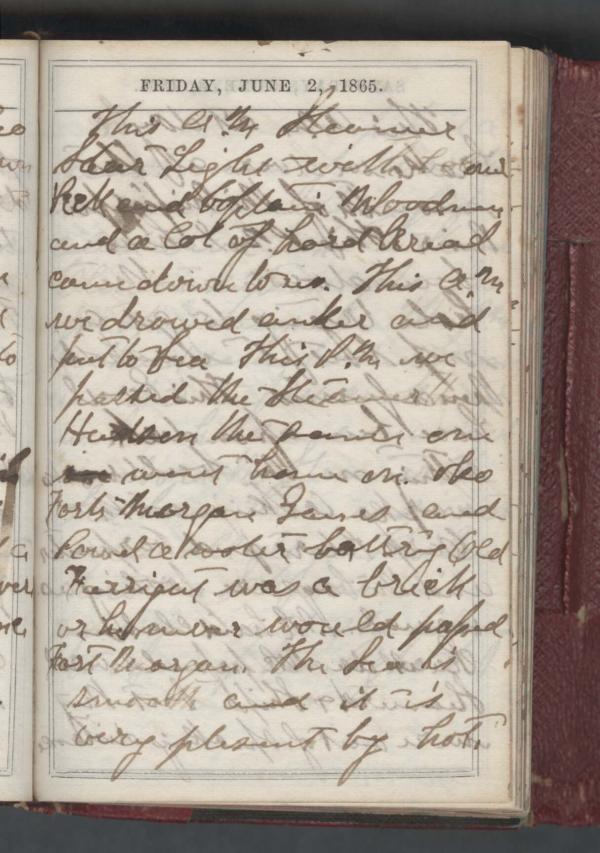 FRIDAY, JUNE 2, 1865.
This A.M. Steamer
Star Light with
and Captain Woodman
and a lot of hard bread
came down to us. This A.M
we drowed anker and
put to Sea This P.M. we
passed the Steamer
Hudson the same one
went home on. Oho
Fort Morgan Ganes and
Powel a water battry Old
Farrigut was a brick
or he never would passed
Fort Morgan. The Sea is
smooth and it is
very plesent by hot